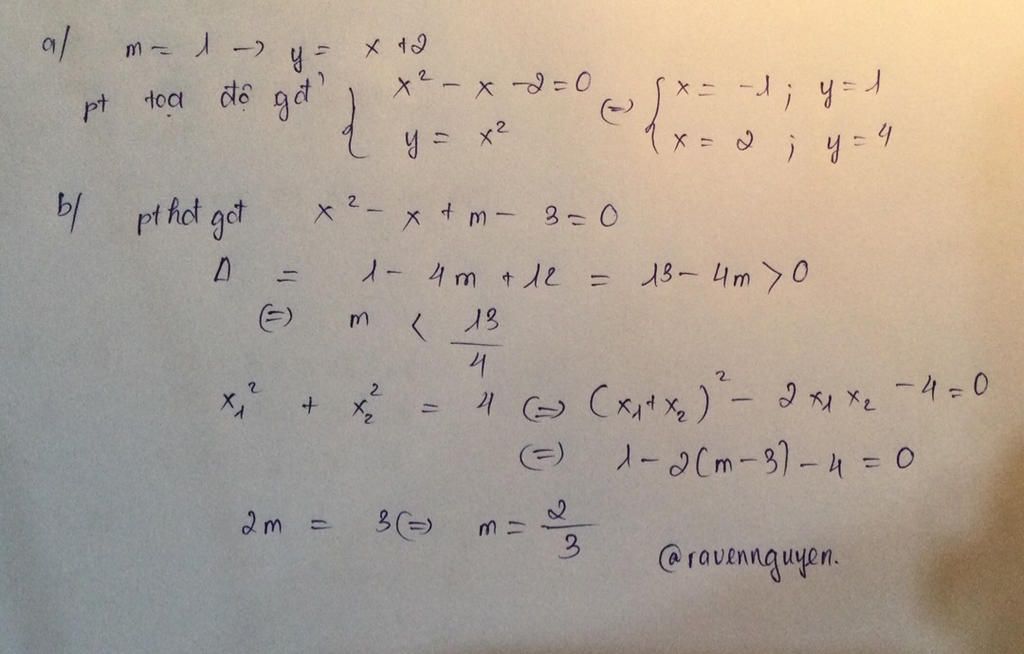 a/ m = 1 → y = x + 2
pt toạ độ gđ' { x² - x - 2 = 0 (=) { x = -1 ; y = 1
y = x² x = 2 ; y = 4
b/ pt hđ gđ x² - x + m - 3 = 0
Δ = 1 - 4m + 12 = 13 - 4m > 0
(=) m < 13/4
x₁² + x₂² = 4 (=) (x₁ + x₂)² - 2x₁x₂ - 4 = 0
(=) 1 - 2(m - 3) - 4 = 0
2m = 3 (=) m = 2/3
@ravennguyen.